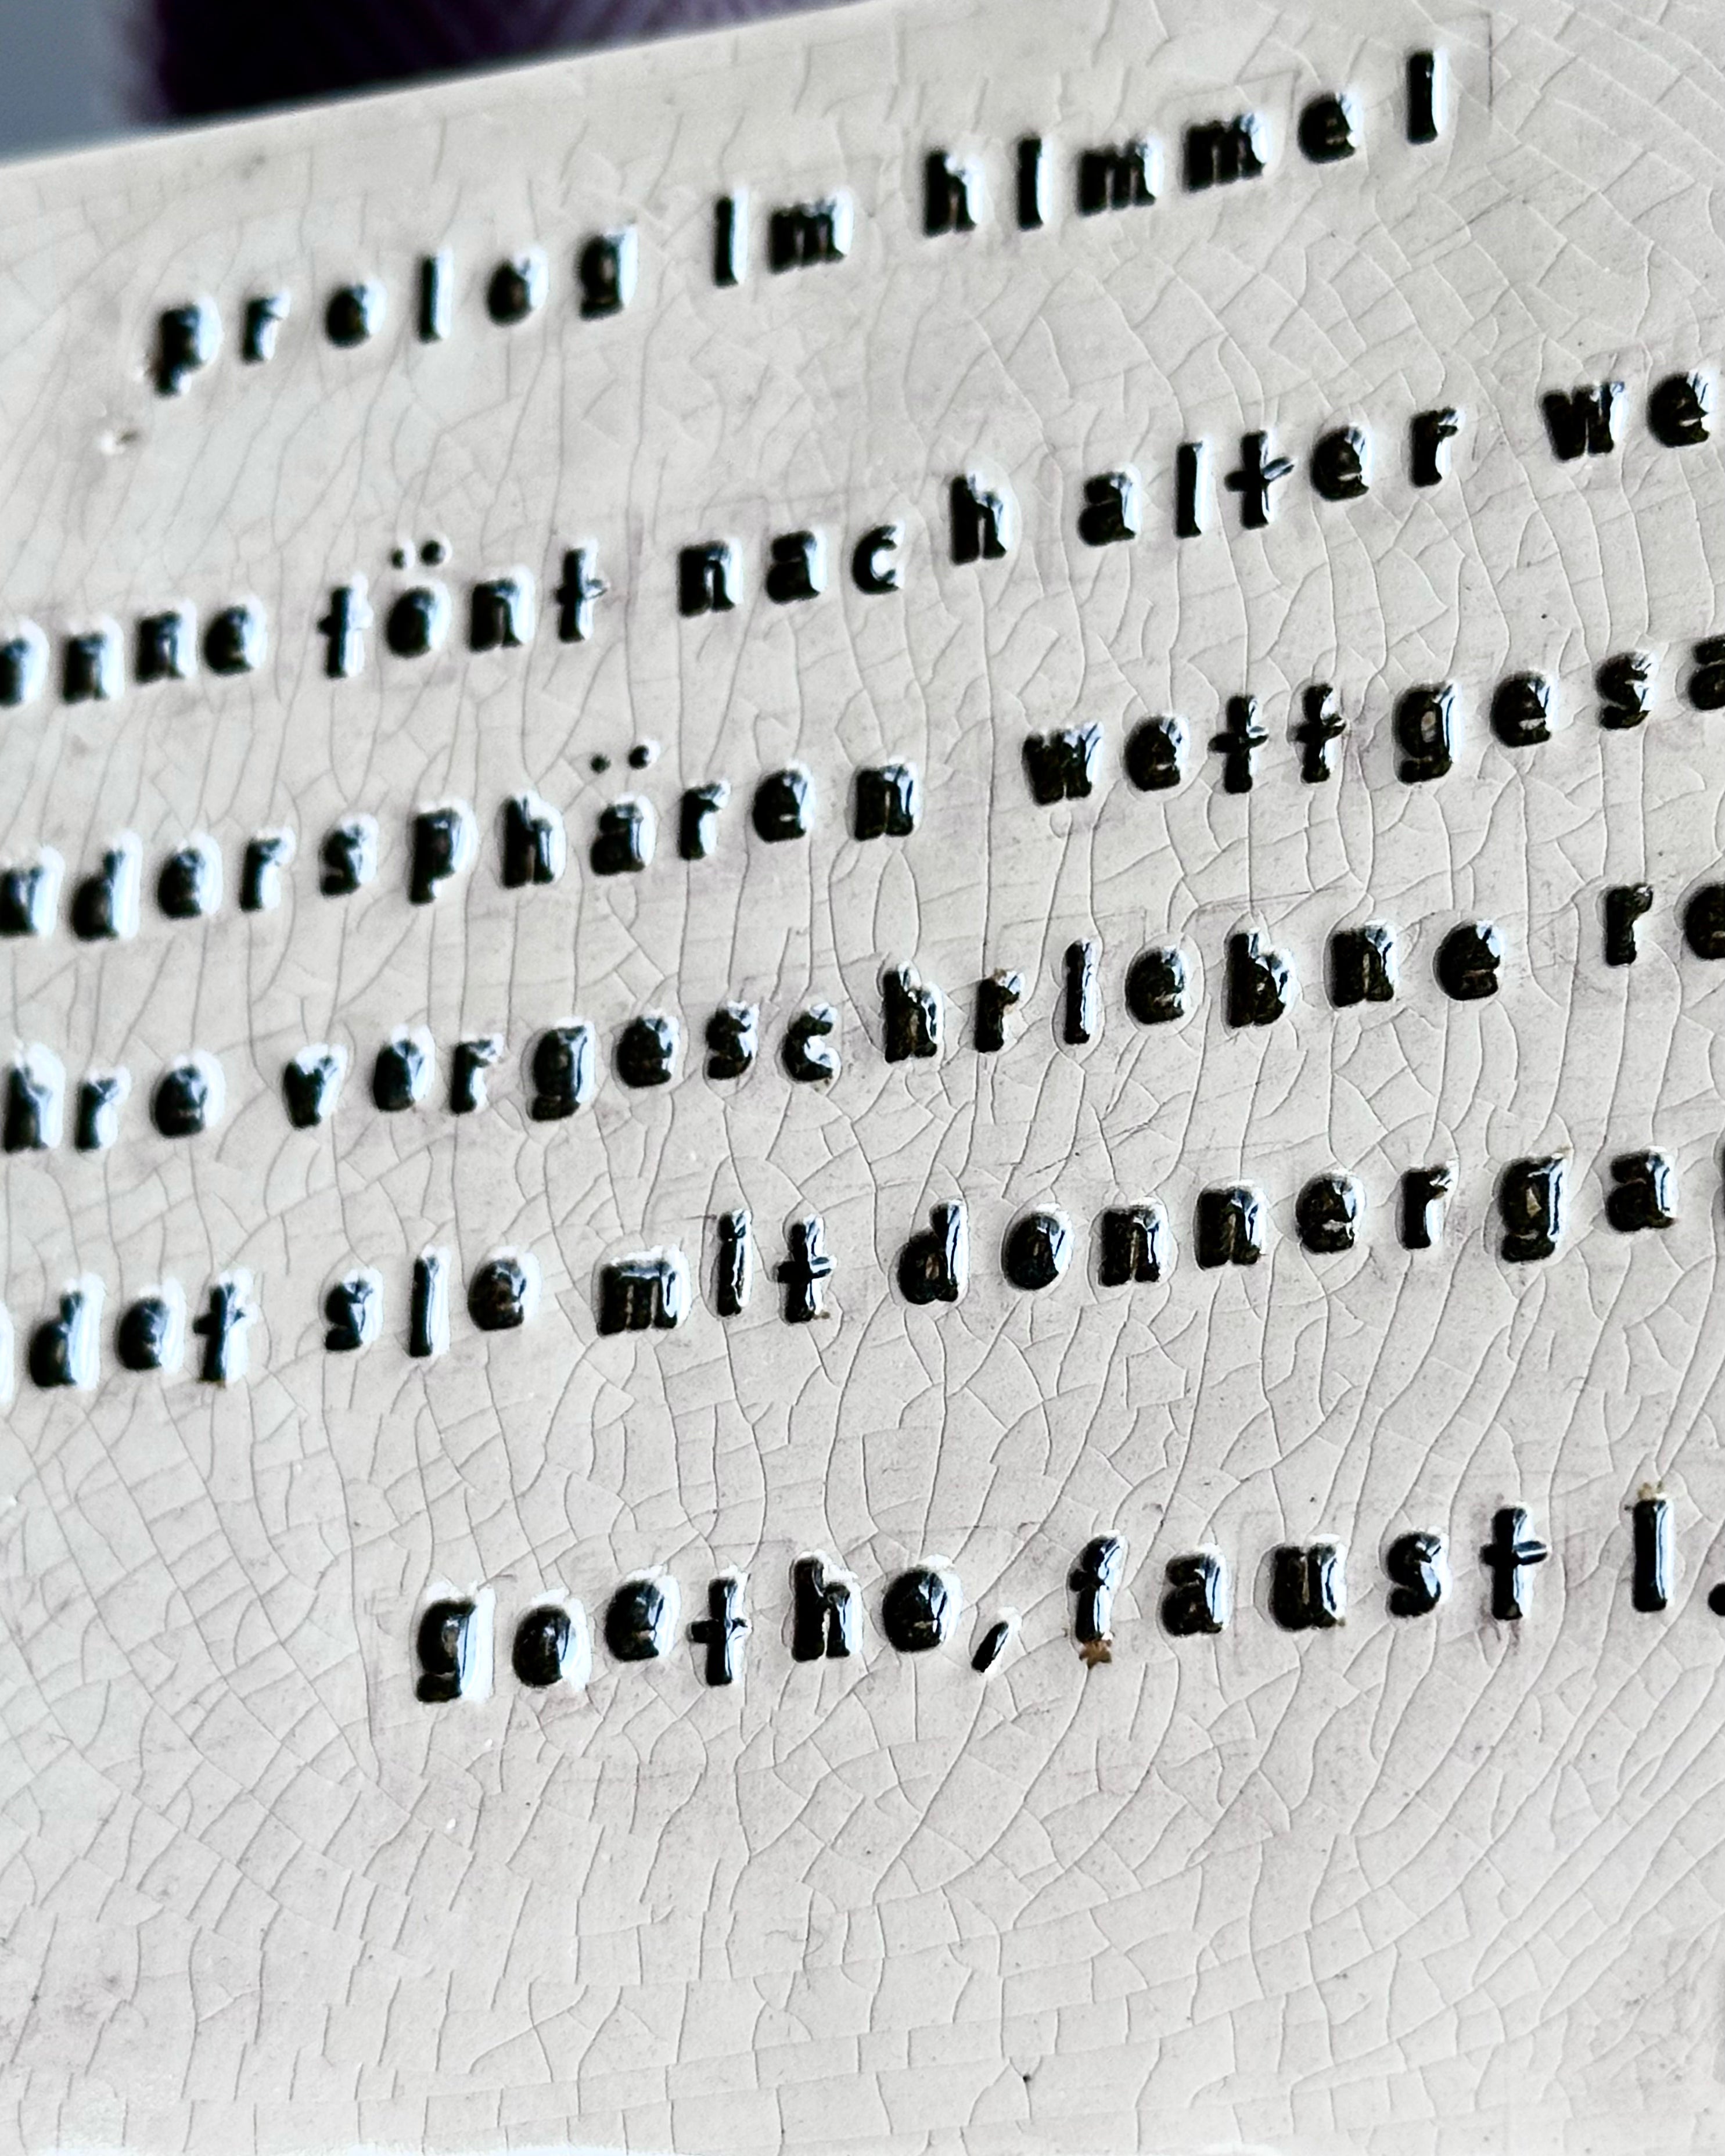 prolog im himmel
onne tönt nach alter we
udersphären wettgesa
hre vorgeschriebne re
det sie mit donnerga
goethe, faust I.